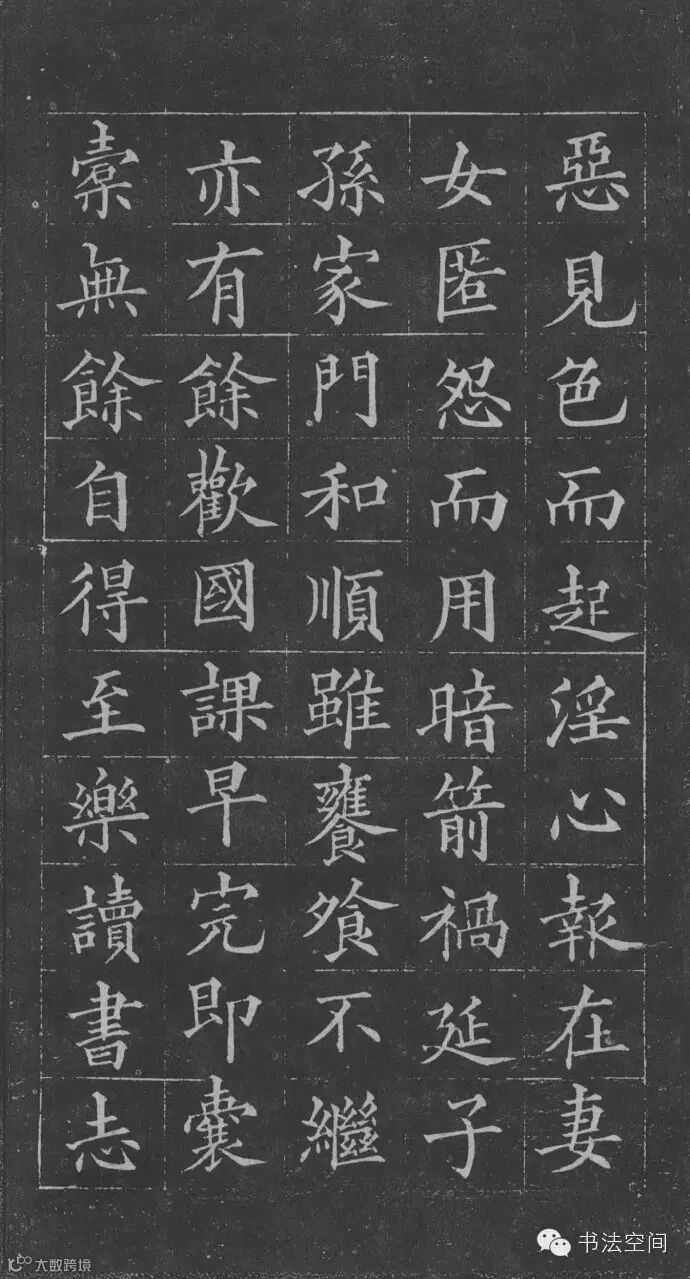 惡見色而起淫心報在妻
女匿怨而用暗箭禍延子
孫家門和順雖饔飧不繼
亦有餘歡國課早完即囊
橐無餘自得至樂讀書志
书法空间
大数跨境